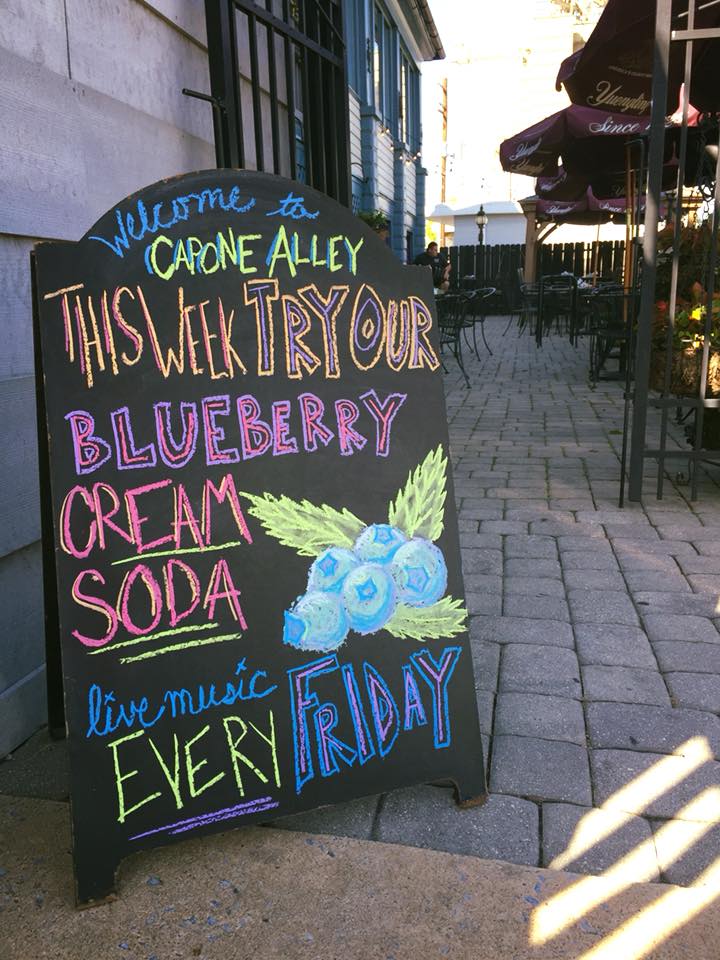 Welcome to
CAPONE ALLEY
THIS WEEK TRY OUR
BLUEBERRY
CREAM
SODA
live music
EVERY FRIDAY
Yuengling
Since